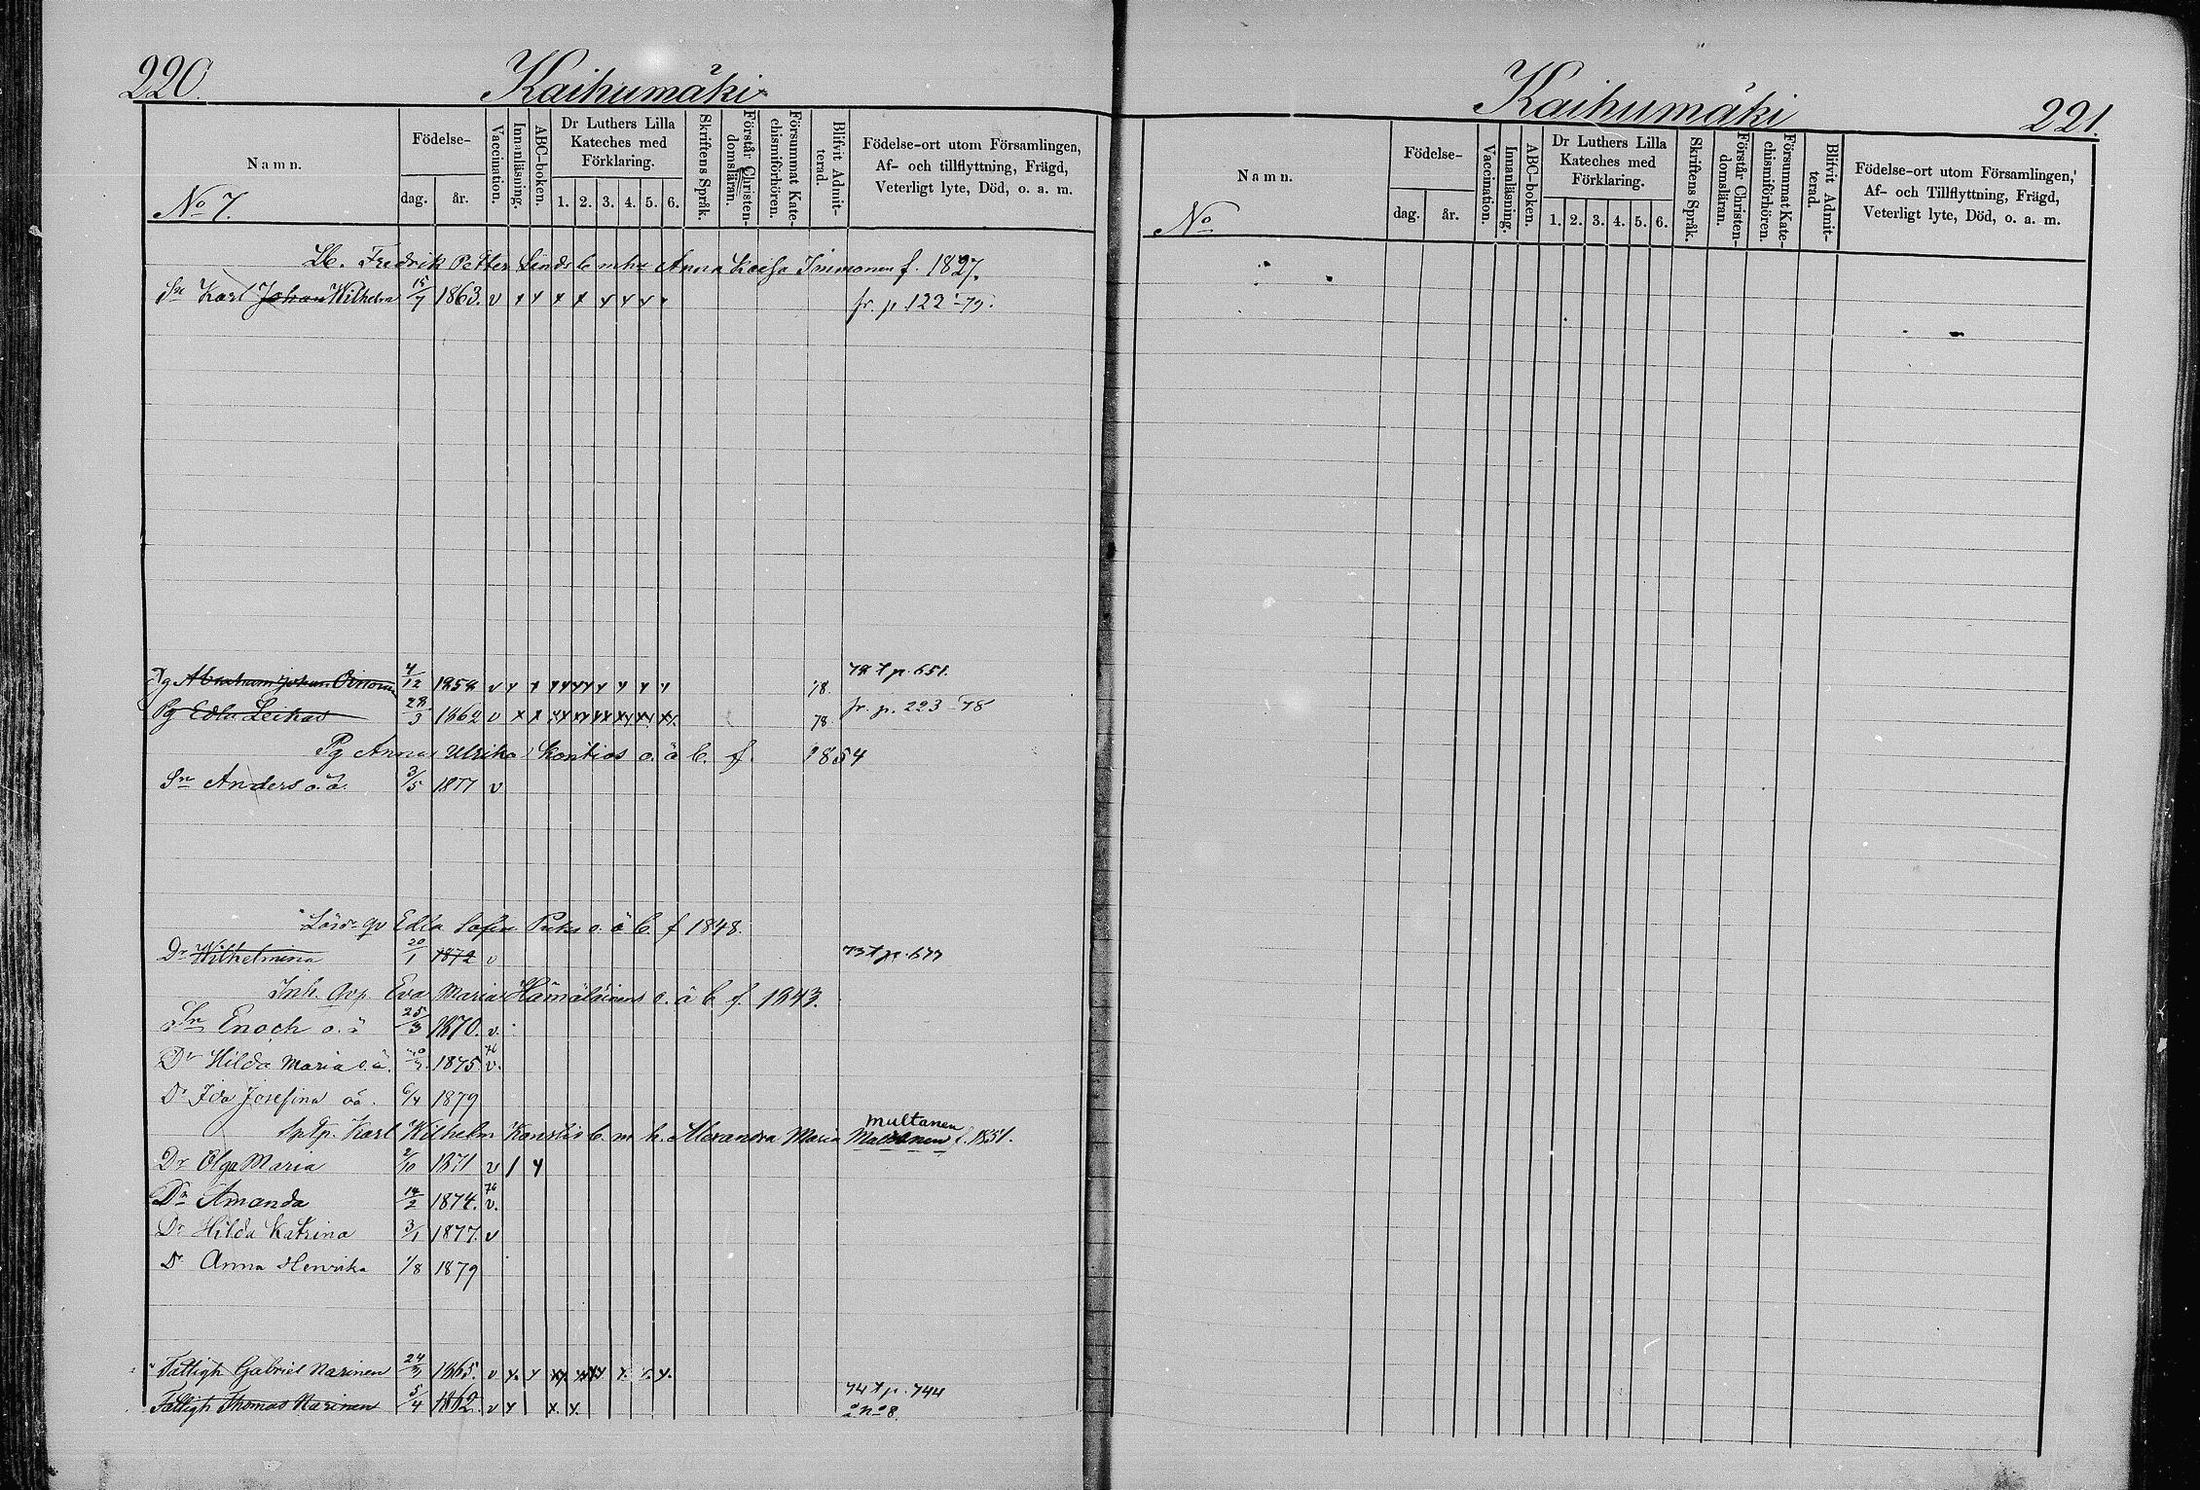 220.
Kaihumäki
Namn.
Födelse-
dag.
år.
Vaccination.
Innanläsning.
ABC-boken.
Dr Luthers Lilla
Kateches med
Förklaring.
1. 2. 3. 4. 5. 6.
Skriftens Språk.
Förstår Christen-
domsläran.
Försummat Kate-
chismiförhören.
Blifvit Admit-
terad.
Födelse-ort utom Församlingen,
Af- och tillflyttning, Frägd,
Veterligt lyte, Död, o. a. m.
No 7.
Fredrik Petter Anna Immonen f. 1827.
Sn Karl Johan Wilhelm 15/7 1863. v fr. p. 122 -79.
Pg Abraham Johan 4/12 1858 v 78. p. 651.
Pg Edla Leikas 28/3 1862 v 78 fr. p. 223 -78
Pg Anna Ulrika Kontios o. ä b. f. 1854
Sn Anders o. ä. 3/5 1877 v
Edla Sofia o. ä b. f 1848.
Dr Wilhelmina 20/1 1872 v p. 677
Inh. Eva Maria Hämäläinens o. ä b f. 1843.
Sn Enoch o. ä 25/3 1870. v.
Dr Hilda Maria o. ä. 1875 76 v.
Dr Ida Josefina oä. 6/4 1879
Karl Wilhelm b. m h. Alexandra Maria Multanen f. 1851.
Dr Olga Maria 2/10 1871 v
Dr Amanda 14/2 1874. 76 v.
Dr Hilda Katrina 3/1 1877. v
Dr Anna Henrika 1/8 1879
Fattigh Gabriel Narinen 24/3 1865. v
Fattigh Thomas Narinen 5/4 1862. v 74 p. 744
å no 8.
Kaihumäki
221.
Namn.
Födelse-
dag.
år.
Vaccination.
Innanläsning.
ABC-boken.
Dr Luthers Lilla
Kateches med
Förklaring.
1. 2. 3. 4. 5. 6.
Skriftens Språk.
Förstår Christen-
domsläran.
Försummat Kate-
chismiförhören.
Blifvit Admit-
terad.
Födelse-ort utom Församlingen,
Af- och Tillflyttning, Frägd,
Veterligt lyte, Död, o. a. m.
No